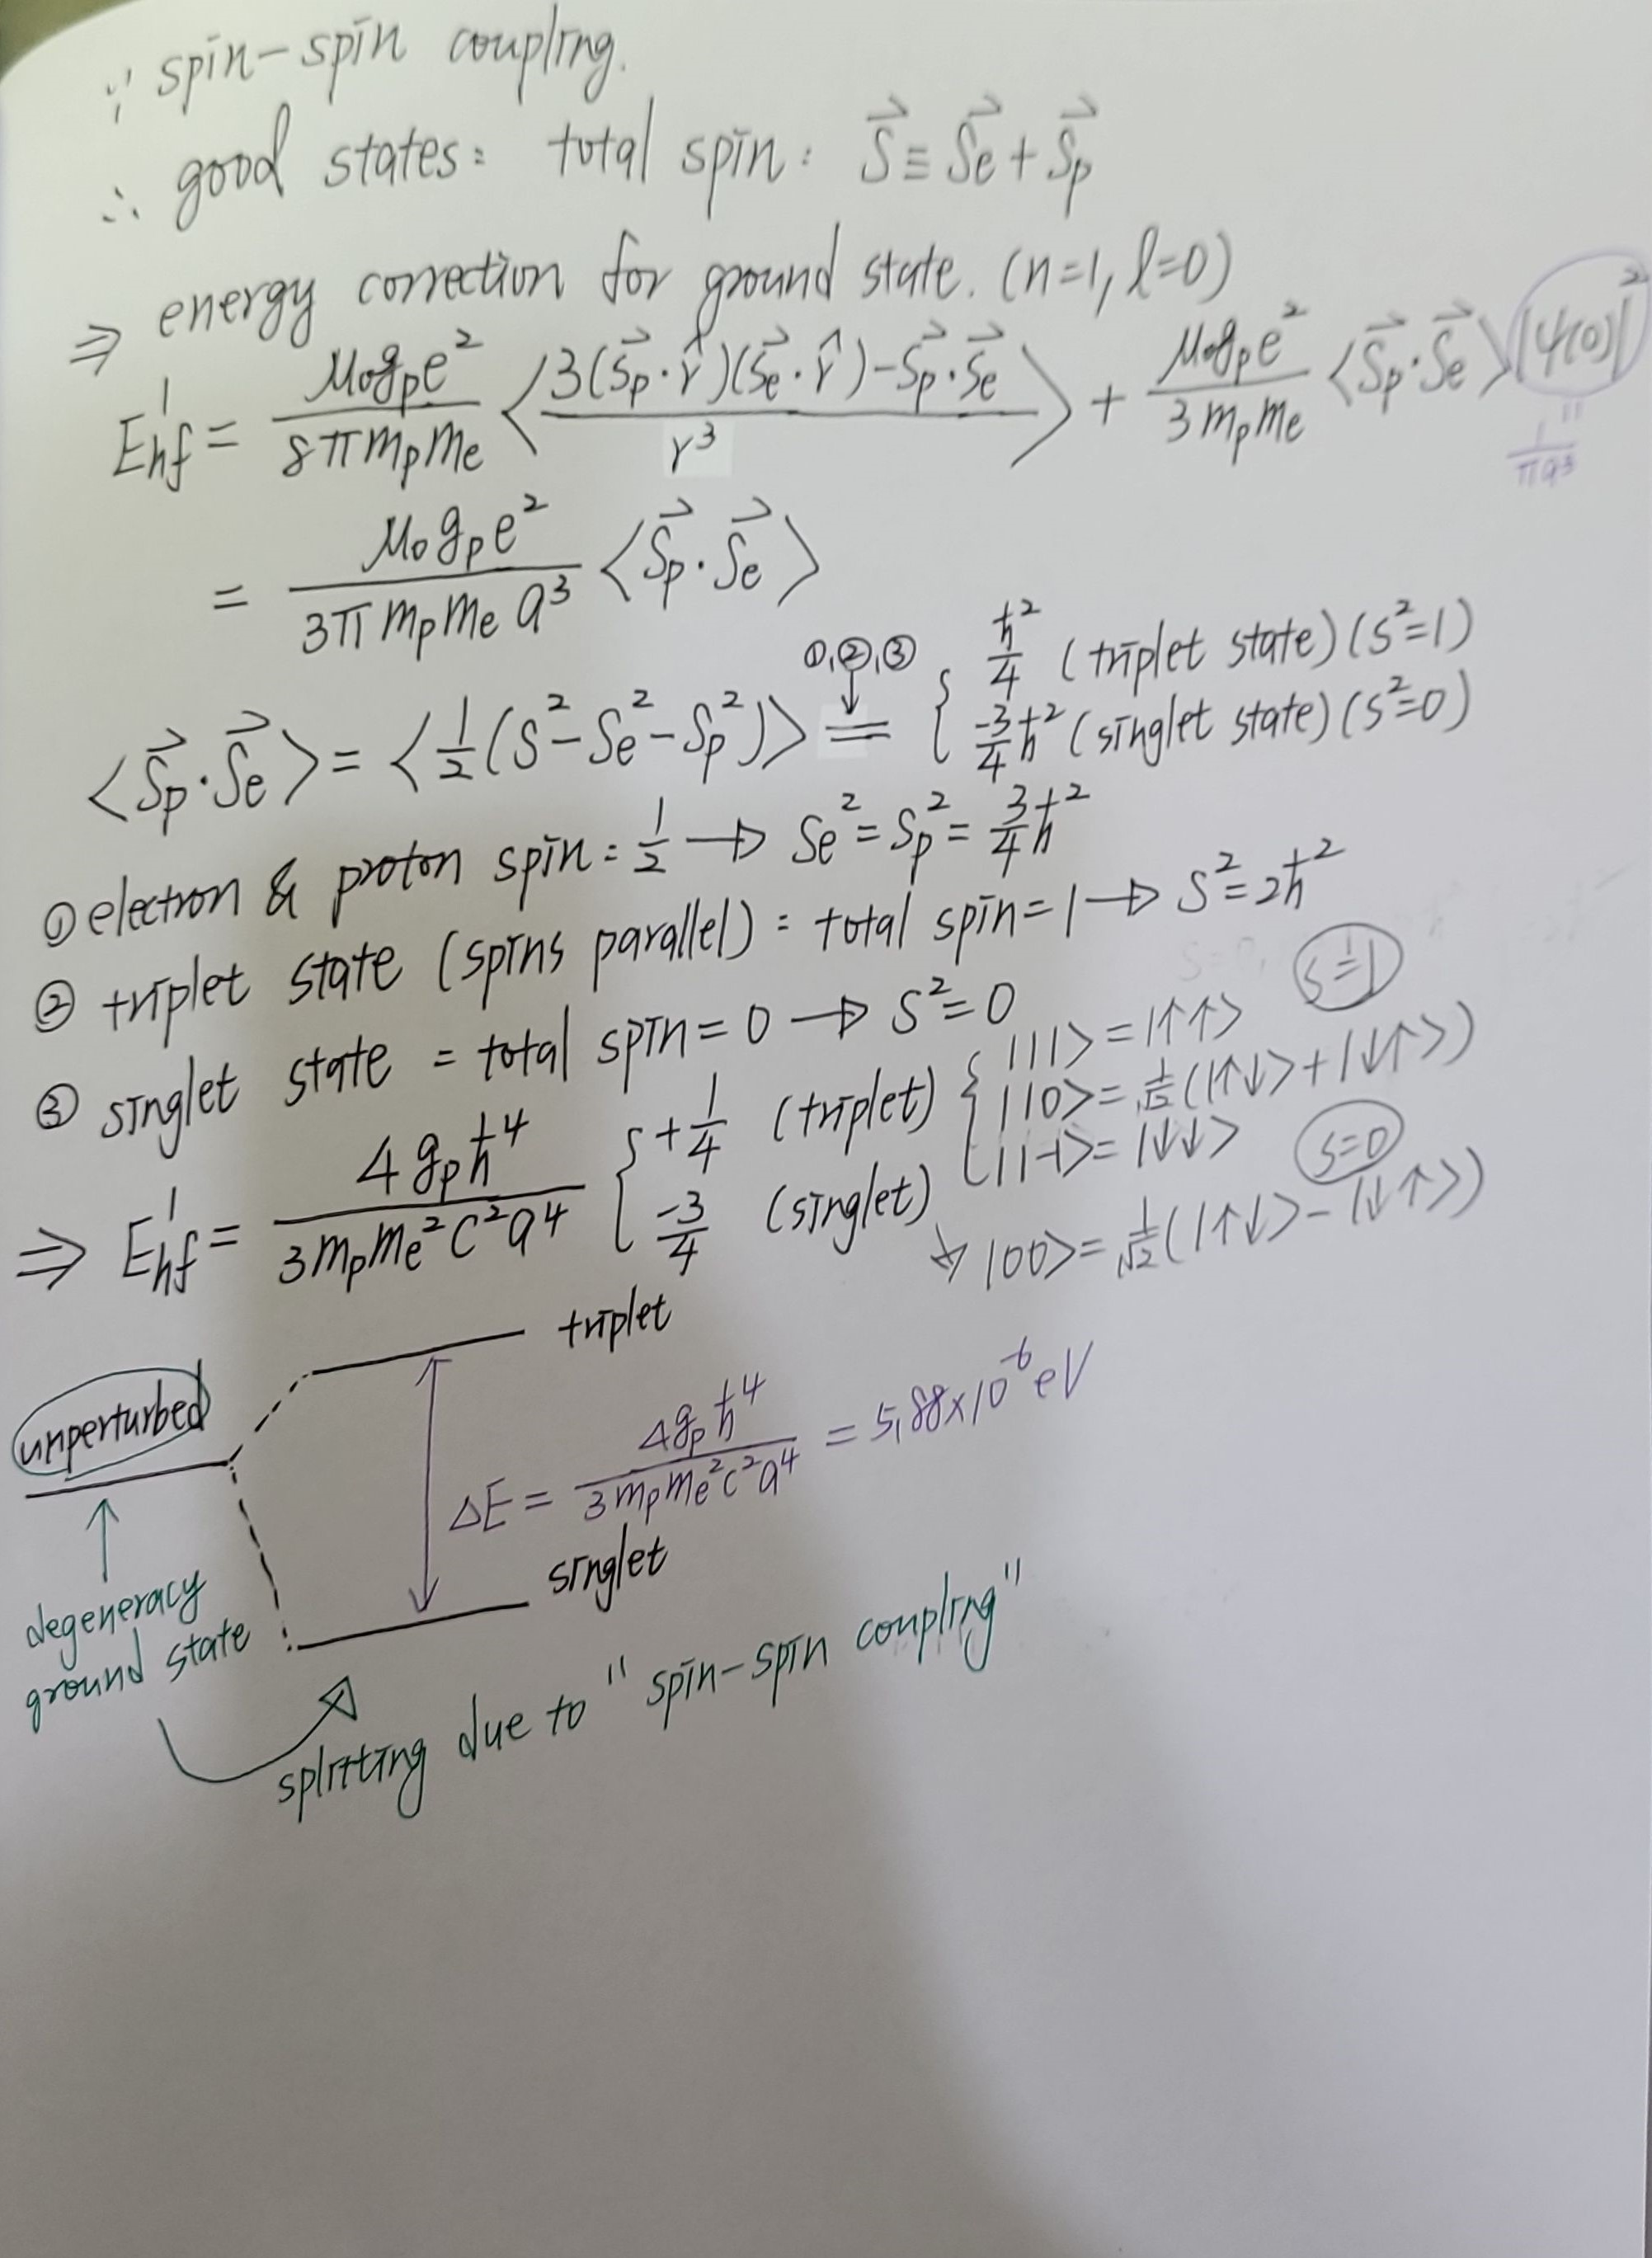 ∵ spin-spin coupling.
∴ good states: total spin: S⃗ ≡ S⃗e + S⃗p
⇒ energy correction for ground state. (n=1, l=0)
E¹hf = μ₀gₚe²/8πmₚmₑ ⟨(3(S⃗p·r̂)(S⃗e·r̂) − S⃗p·S⃗e)/r³⟩ + μ₀gₚe²/3mₚmₑ ⟨S⃗p·S⃗e⟩ |ψ(0)|²
" 1/πa³
= μ₀gₚe²/3πmₚmₑa³ ⟨S⃗p·S⃗e⟩
①,②,③
⟨S⃗p·S⃗e⟩ = ⟨½(S² − Se² − Sp²)⟩ = { ħ²/4 (triplet state) (S²=1)
−3/4 ħ² (singlet state) (S²=0)
① electron & proton spin = 1/2 → Se² = Sp² = 3/4 ħ²
② triplet state (spins parallel) = total spin = 1 → S² = 2ħ²
③ singlet state = total spin = 0 → S² = 0
⇒ E¹hf = 4gₚħ⁴/3mₚmₑ²c²a⁴ { +1/4 (triplet)
−3/4 (singlet)
s=1
{ |11⟩ = |↑↑⟩
|10⟩ = 1/√2 (|↑↓⟩ + |↓↑⟩)
|1-1⟩ = |↓↓⟩
s=0
↳ |00⟩ = 1/√2 (|↑↓⟩ − |↓↑⟩)
triplet
unperturbed
ΔE = 4gₚħ⁴/3mₚmₑ²c²a⁴ = 5.88×10⁻⁶ eV
singlet
degeneracy
ground state
splitting due to "spin-spin coupling"